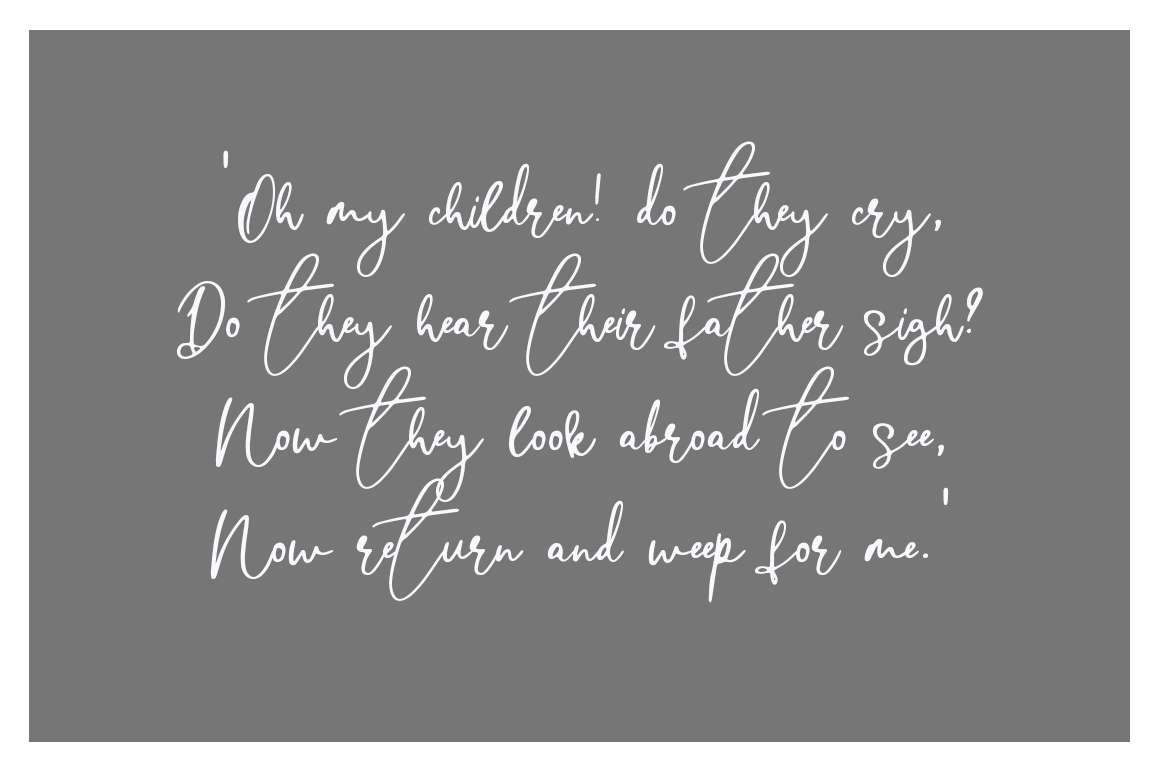 'Oh my children! do they cry,
Do they hear their father sigh?
Now they look abroad to see,
Now return and weep for me.'